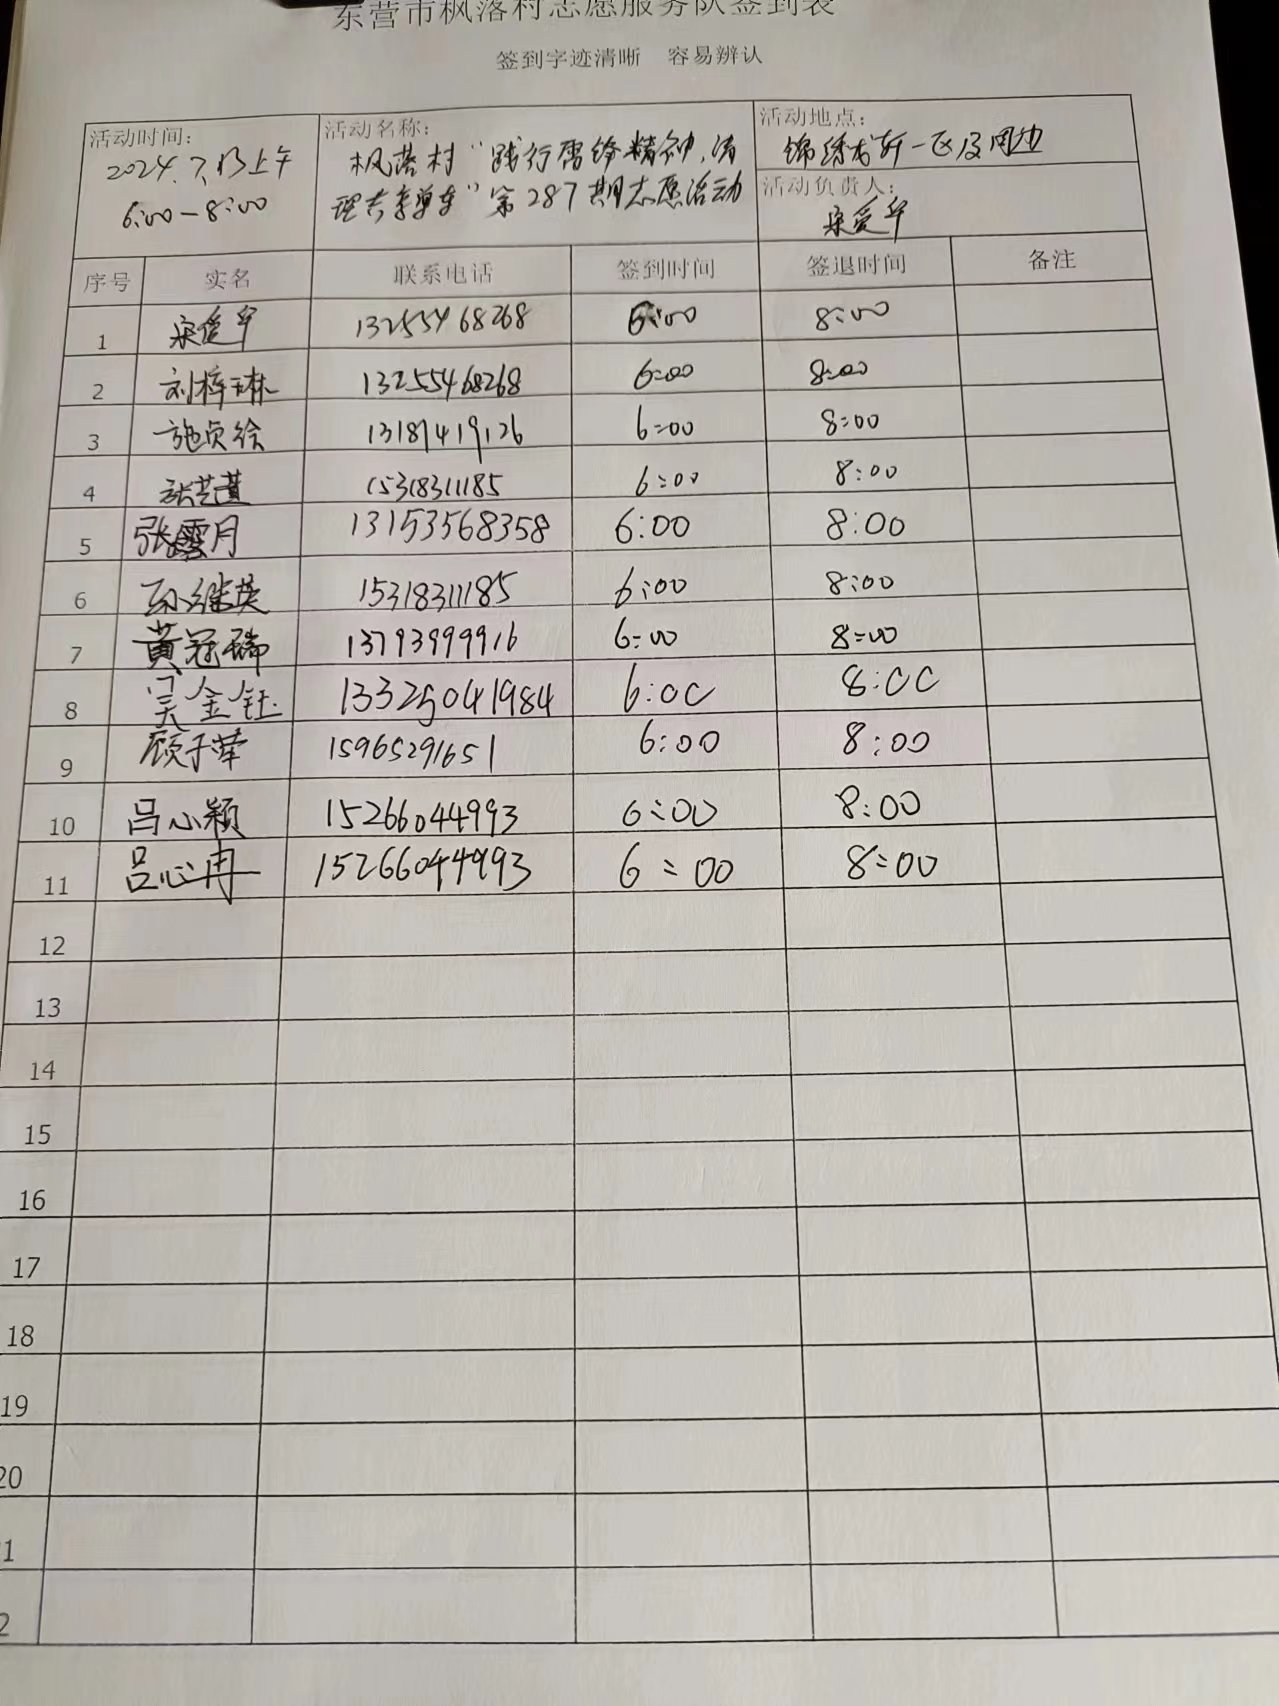 东营市枫落村志愿服务队签到表
签到字迹清晰 容易辨认
活动时间: 2024.7.13上午 6:00-8:00
活动名称: 枫落村"践行雷锋精神,清理共享单车"第287期志愿活动
活动地点: 锦绣龙轩一区及周边
活动负责人:
序号 实名 联系电话 签到时间 签退时间 备注
1 13255468268 6:00 8:00
2 刘梓琳 13255468268 6:00 8:00
3 施贞绘 13181419126 6:00 8:00
4 15318311185 6:00 8:00
5 张雪月 13153568358 6:00 8:00
6 孙继英 15318311185 6:00 8:00
7 黄冠瑞 13793999916 6:00 8:00
8 吴金钰 13325041984 6:00 8:00
9 顾于华 15965291651 6:00 8:00
10 吕心颖 15266044993 6:00 8:00
11 吕心冉 15266044993 6:00 8:00
12
13
14
15
16
17
18
19
20
1
2